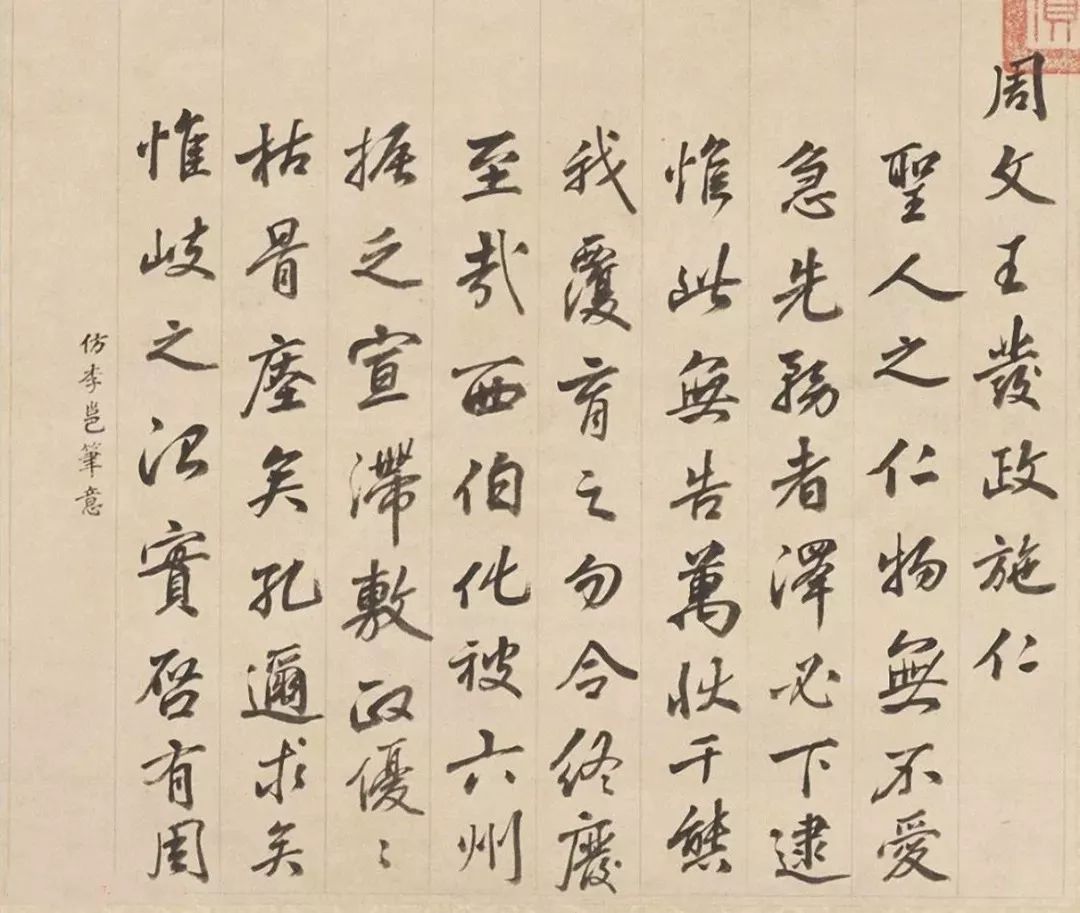 周文王發政施仁
聖人之仁物無不愛
急先務者澤必下逮
惟此無告萬狀千態
我覆育之勿令終廢
至哉西伯化被六州
振乏宣滯敷政優〻
枯骨瘞矣孔邇求矣
惟岐之治實啓有周
仿李邕筆意